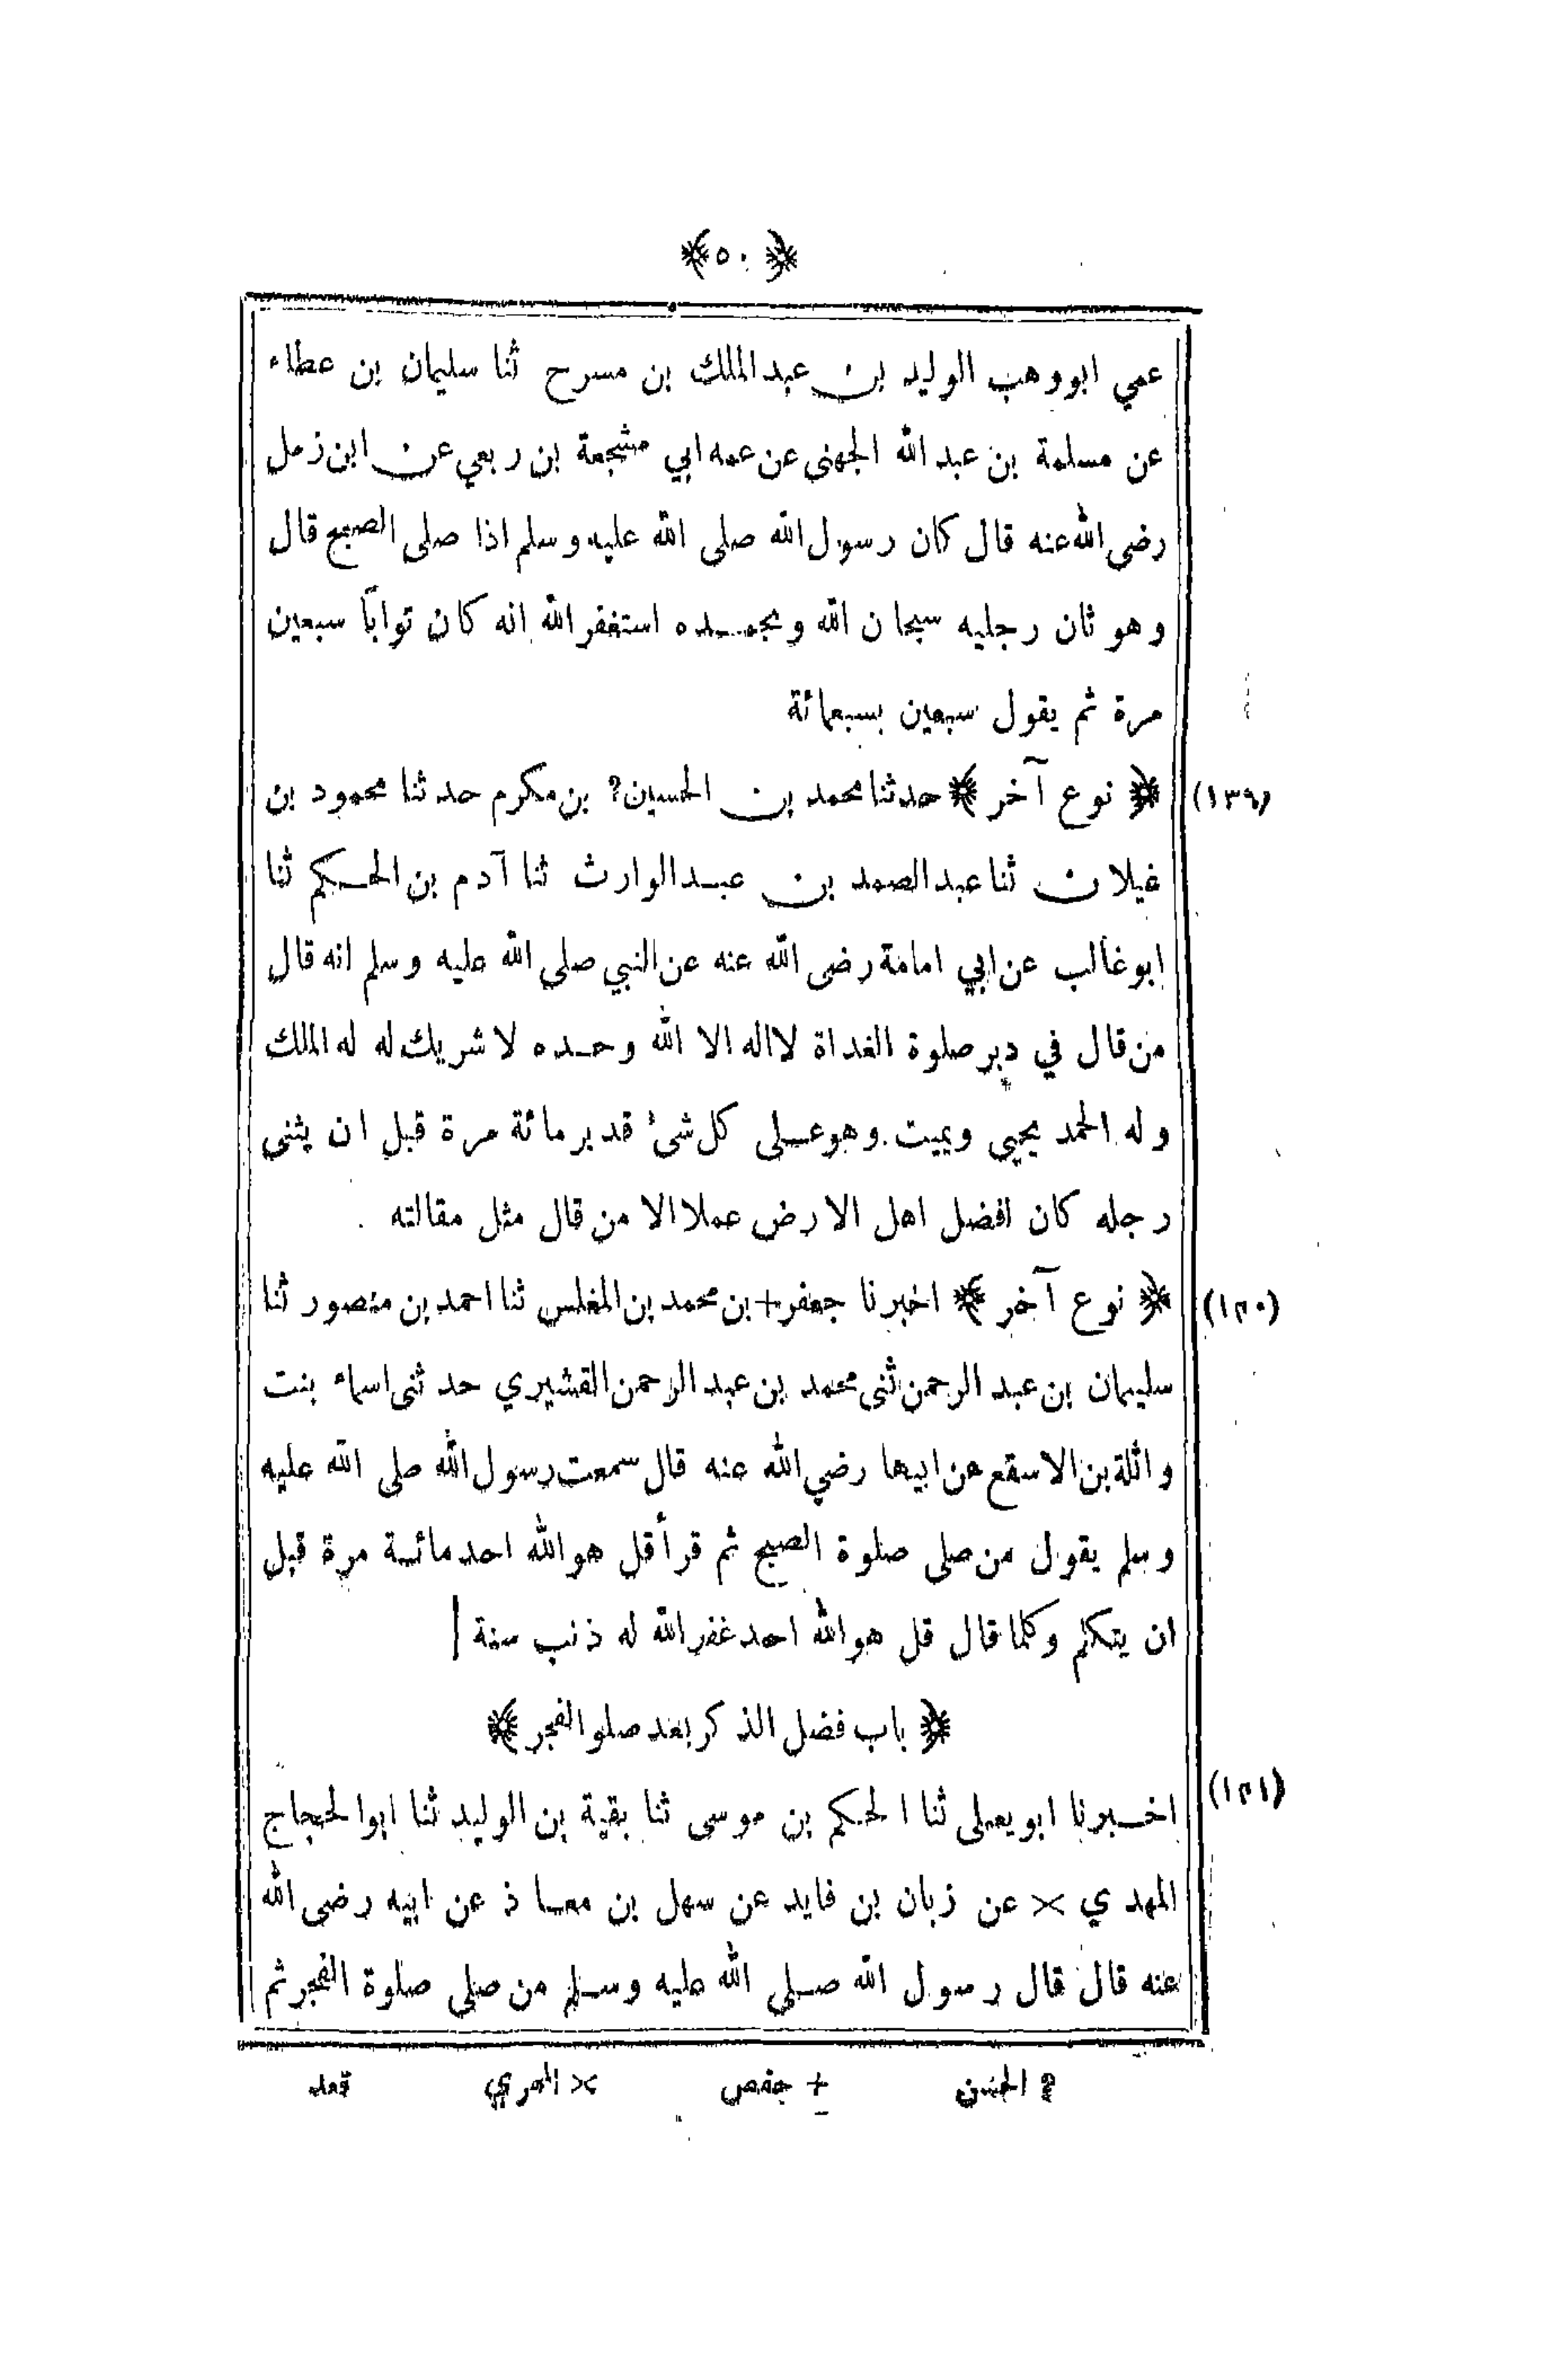 ﴿ ٥٠ ﴾
عمي ابووهب الوليد بن عبدالملك بن مسرح ثنا سليمان بن عطاء
عن مسلمة بن عبد الله الجهنى عن عمه ابي مشجعة بن ربعي عن ابن زمل
رضى الله عنه قال كان رسول الله صلى الله عليه وسلم اذا صلى الصبح قال
وهو ثان رجليه سبحان الله وبحمده استغفر الله انه كان توابًا سبعين
مرة ثم يقول سبعين بسبعمائة
(١٣٩) ﴿ نوع آخر ﴾ حدثنا محمد بن الحسين? بن مكرم حدثنا محمود بن
غيلان ثنا عبد الصمد بن عبد الوارث ثنا آدم بن الحكم ثنا
ابوغالب عن ابي امامة رضى الله عنه عن النبي صلى الله عليه وسلم انه قال
من قال في دبر صلوة الغداة لا اله الا الله وحده لا شريك له له الملك
وله الحمد يحيى ويميت وهو على كل شئ قدير مائة مرة قبل ان يثنى
رجله كان افضل اهل الارض عملا الا من قال مثل مقالته
(١٤٠) ﴿ نوع آخر ﴾ اخبرنا جعفر+ بن محمد بن المغلس ثنا احمد بن منصور ثنا
سليمان بن عبد الرحمن ثنى محمد بن عبد الرحمن القشيري حدثنى اسماء بنت
واثلة بن الاسقع عن ابيها رضي الله عنه قال سمعت رسول الله صلى الله عليه
وسلم يقول من صلى صلوة الصبح ثم قرأ قل هو الله احد مائة مرة قبل
ان يتكلم وكلما قال قل هو الله احد غفر الله له ذنب سنة
﴿ باب فضل الذكر بعد صلو الفجر ﴾
(١٤١) اخبرنا ابو يعلى ثنا الحكم بن موسى ثنا بقية بن الوليد ثنا ابوالحجاج
المهدي × عن زبان بن فايد عن سهل بن معاذ عن ابيه رضى الله
عنه قال قال رسول الله صلى الله عليه وسلم من صلى صلوة الفجر ثم
? الحسن + حفص × المهري قعد